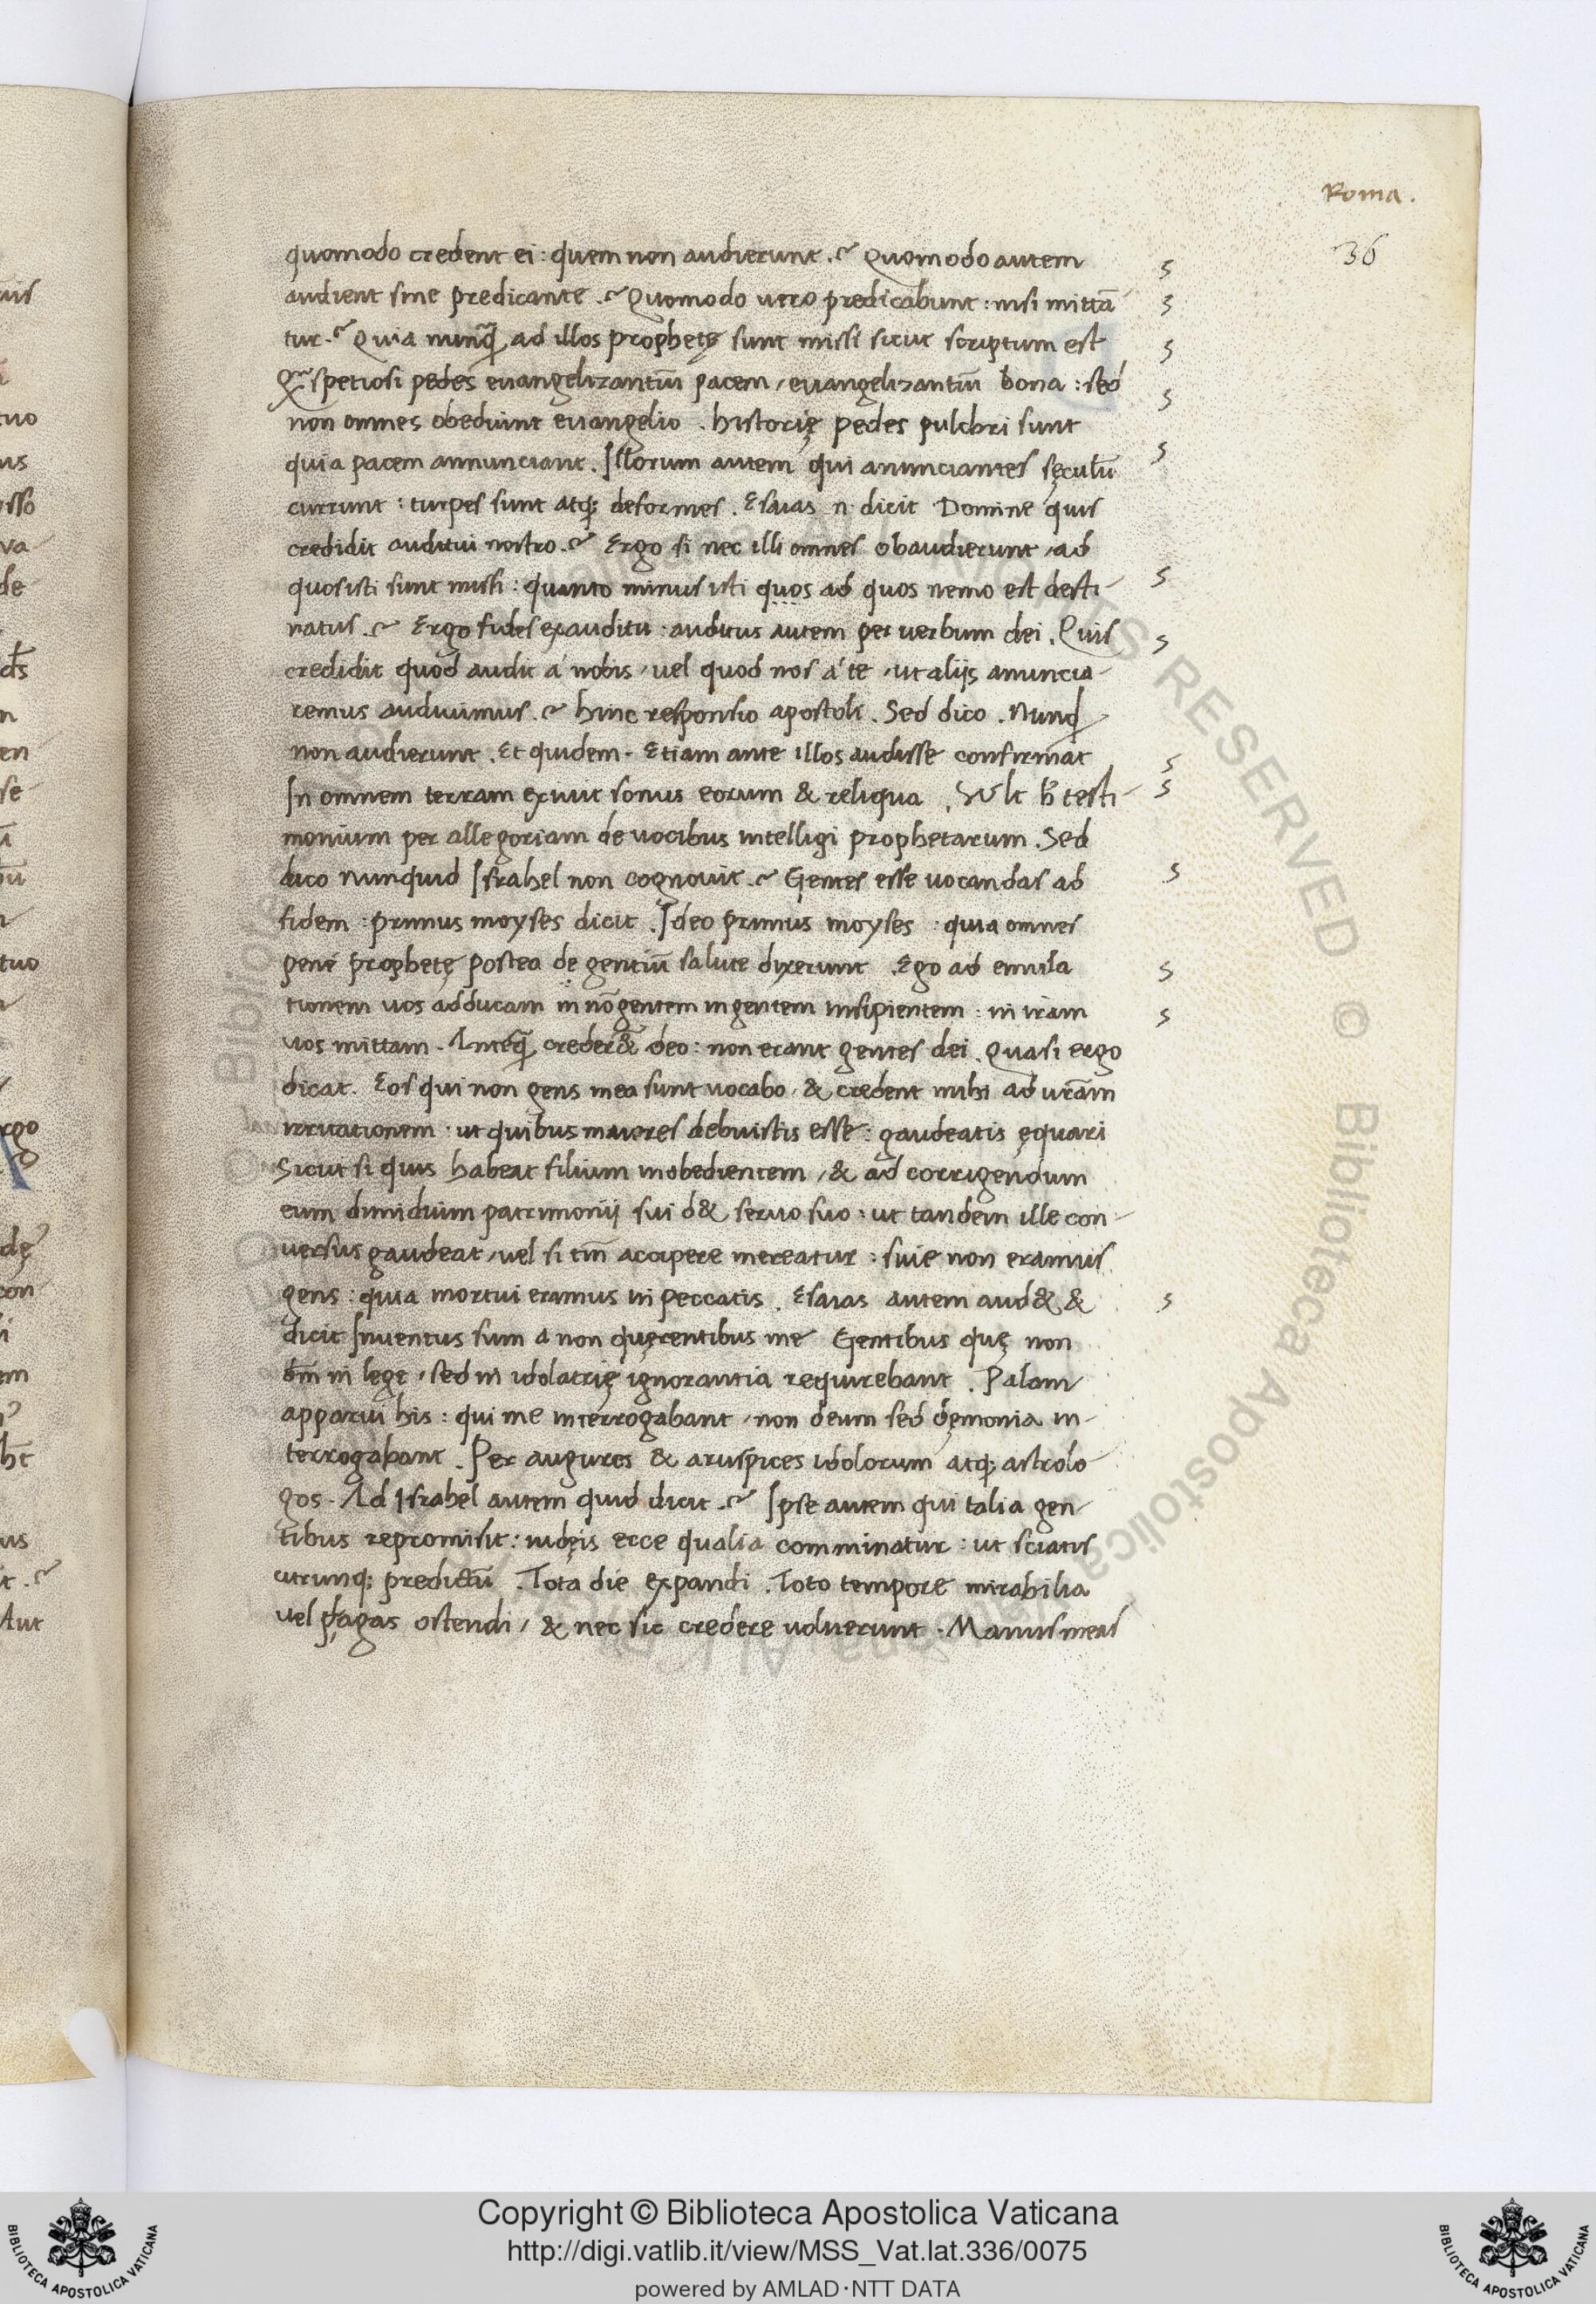 Roma.
36
quomodo credent ei : quem non audierunt .~ Quomodo autem
audient sine predicante .~ Quomodo uero predicabunt : nisi mittã
tur .~ Quia nunq̃ ad illos prophetę sunt missi sicut scriptum est
Q̃ spetiosi pedes euangelizantiũ pacem / euangelizantiũ bona : sed
non omnes obediunt euangelio . historię pedes pulchri sunt
quia pacem annunciant . Illorum autem qui anunciantes sęculũ
currunt : turpes sunt atq; deformes . Esaias n. dicit Domine quis
credidit auditui nostro .~ Ergo si nec illi omnes obaudierunt / ad
quos isti sunt missi : quanto minus isti quos ad quos nemo est desti-
natus .~ Ergo fides ex auditu : auditus autem per uerbum dei . Quis
credidit quod audit á nobis / uel quod nos á te / ut alijs anuncia-
remus audiuimus .~ hinc responsio apostoli . Sed dico . Nunq̣d
non audierunt . Et quidem . Etiam ante illos audisse confirmat
In omnem terram exiuit sonus eorum & reliqua . Vult h̃ testi-
monium per allegoriam de uocibus intelligi prophetarum . Sed
dico nunquid Israhel non cognouit .~ Gentes esse uocandas ad
fidem : primus moyses dicit . Ideo primus moyses : quia omnes
pene prophetę postea de gentiũ salute dixerunt . Ego ad emula
tionem uos adducam in nõ gentem in gentem insipientem : in iram
uos mittam . Anteq̃ creder& deo : non erant gentes dei . Quasi ergo
dicat . Eos qui non gens mea sunt uocabo / & credent mihi ad ur̃am
irritationem : ut quibus maiores debuistis esse : gaudeatis ęquari
Sicut si quis habeat filium inobedientem / & ad corrigendum
eum dimidium patrimonij sui d& seruo suo : ut tandem ille con-
uersus gaudeat / uel si tm̃ accipere mereatur : siue non eramus
gens : quia mortui eramus in peccatis . Esaias autem aud& &
dicit Inuentus sum a non quęrentibus me Gentibus quę non
dm̃ in lege / sed in idolatrię ignorantia requirebant . Palam
apparui his : qui me interrogabant / non deum sed dęmonia in-
terrogabant . Per augures & aruspices idolorum atq; astrolo
gos . Ad Israhel autem quid dicit .~ Ipse autem qui talia gen-
tibus repromisit : iudęis ecce qualia comminatur : ut sciatis
utrunq; predictũ . Tota die expandi . Toto tempore mirabilia
uel plagas ostendi / & nec sic credere uoluerunt . Manus meas
Copyright © Biblioteca Apostolica Vaticana
http://digi.vatlib.it/view/MSS_Vat.lat.336/0075
powered by AMLAD·NTT DATA